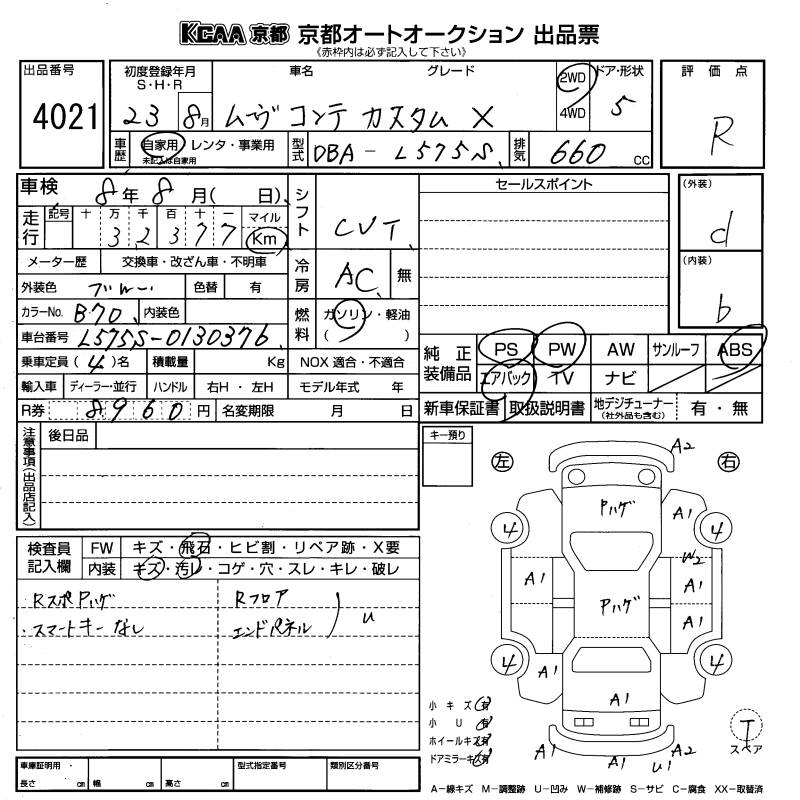 KCAA 京都 京都オートオークション 出品票
《赤枠内は必ず記入して下さい》
出品番号 4021
初度登録年月 S・H・R 23 8月
車名 グレード ムーヴ コンテ カスタム X
2WD 4WD
ドア・形状 5
評価点 R
車歴 自家用・レンタ・事業用
未記入は自家用
型式 DBA-L575S
排気 660 CC
車検 8年 8月( 日)
シフト CVT
セールスポイント
(外装) d
走行 記号 十 万 千 百 十 一 マイル Km
3 2 3 7 7
メーター歴 交換車・改ざん車・不明車
冷房 AC 無
(内装) b
外装色 ブルー 色替 有
カラーNo. B70 内装色
燃料 ガソリン・軽油 ( )
車台番号 L575S-0130376
純正装備品 PS PW AW サンルーフ ABS
エアバック TV ナビ
乗車定員 (4)名 積載量 Kg NOX 適合・不適合
輸入車 ディーラー・並行 ハンドル 右H・左H モデル年式 年
新車保証書 取扱説明書 地デジチューナー (社外品も含む) 有・無
R券 8960円 名変期限 月 日
注意事項(出品店記入) 後日品
キー預り
左 右
A2
Pハゲ
A1
4 4
W2
A1 A1
Pハゲ
A1
4 4
A1
A1
A1 A1 A2
U1
検査員記入欄 FW キズ・飛石・ヒビ割・リペア跡・X要
内装 キズ・汚レ・コゲ・穴・スレ・キレ・破レ
RスポPハゲ Rフロア
スマートキーなし エンドパネル
u
小キズ 有
小U 有
ホイールキズ 有
ドアミラーキズ 有
T
スペア
車庫証明用・ 長さ cm 幅 cm 高さ cm
型式指定番号 類別区分番号
A-線キズ M-調整跡 U-凹み W-補修跡 S-サビ C-腐食 XX-取替済